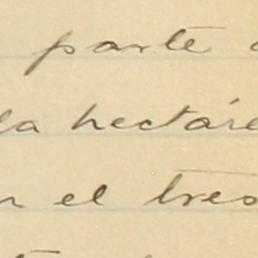 parte
la hectáre
el tres